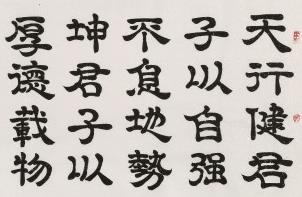 天行健君
子以自强
不息地勢
坤君子以
厚德載物